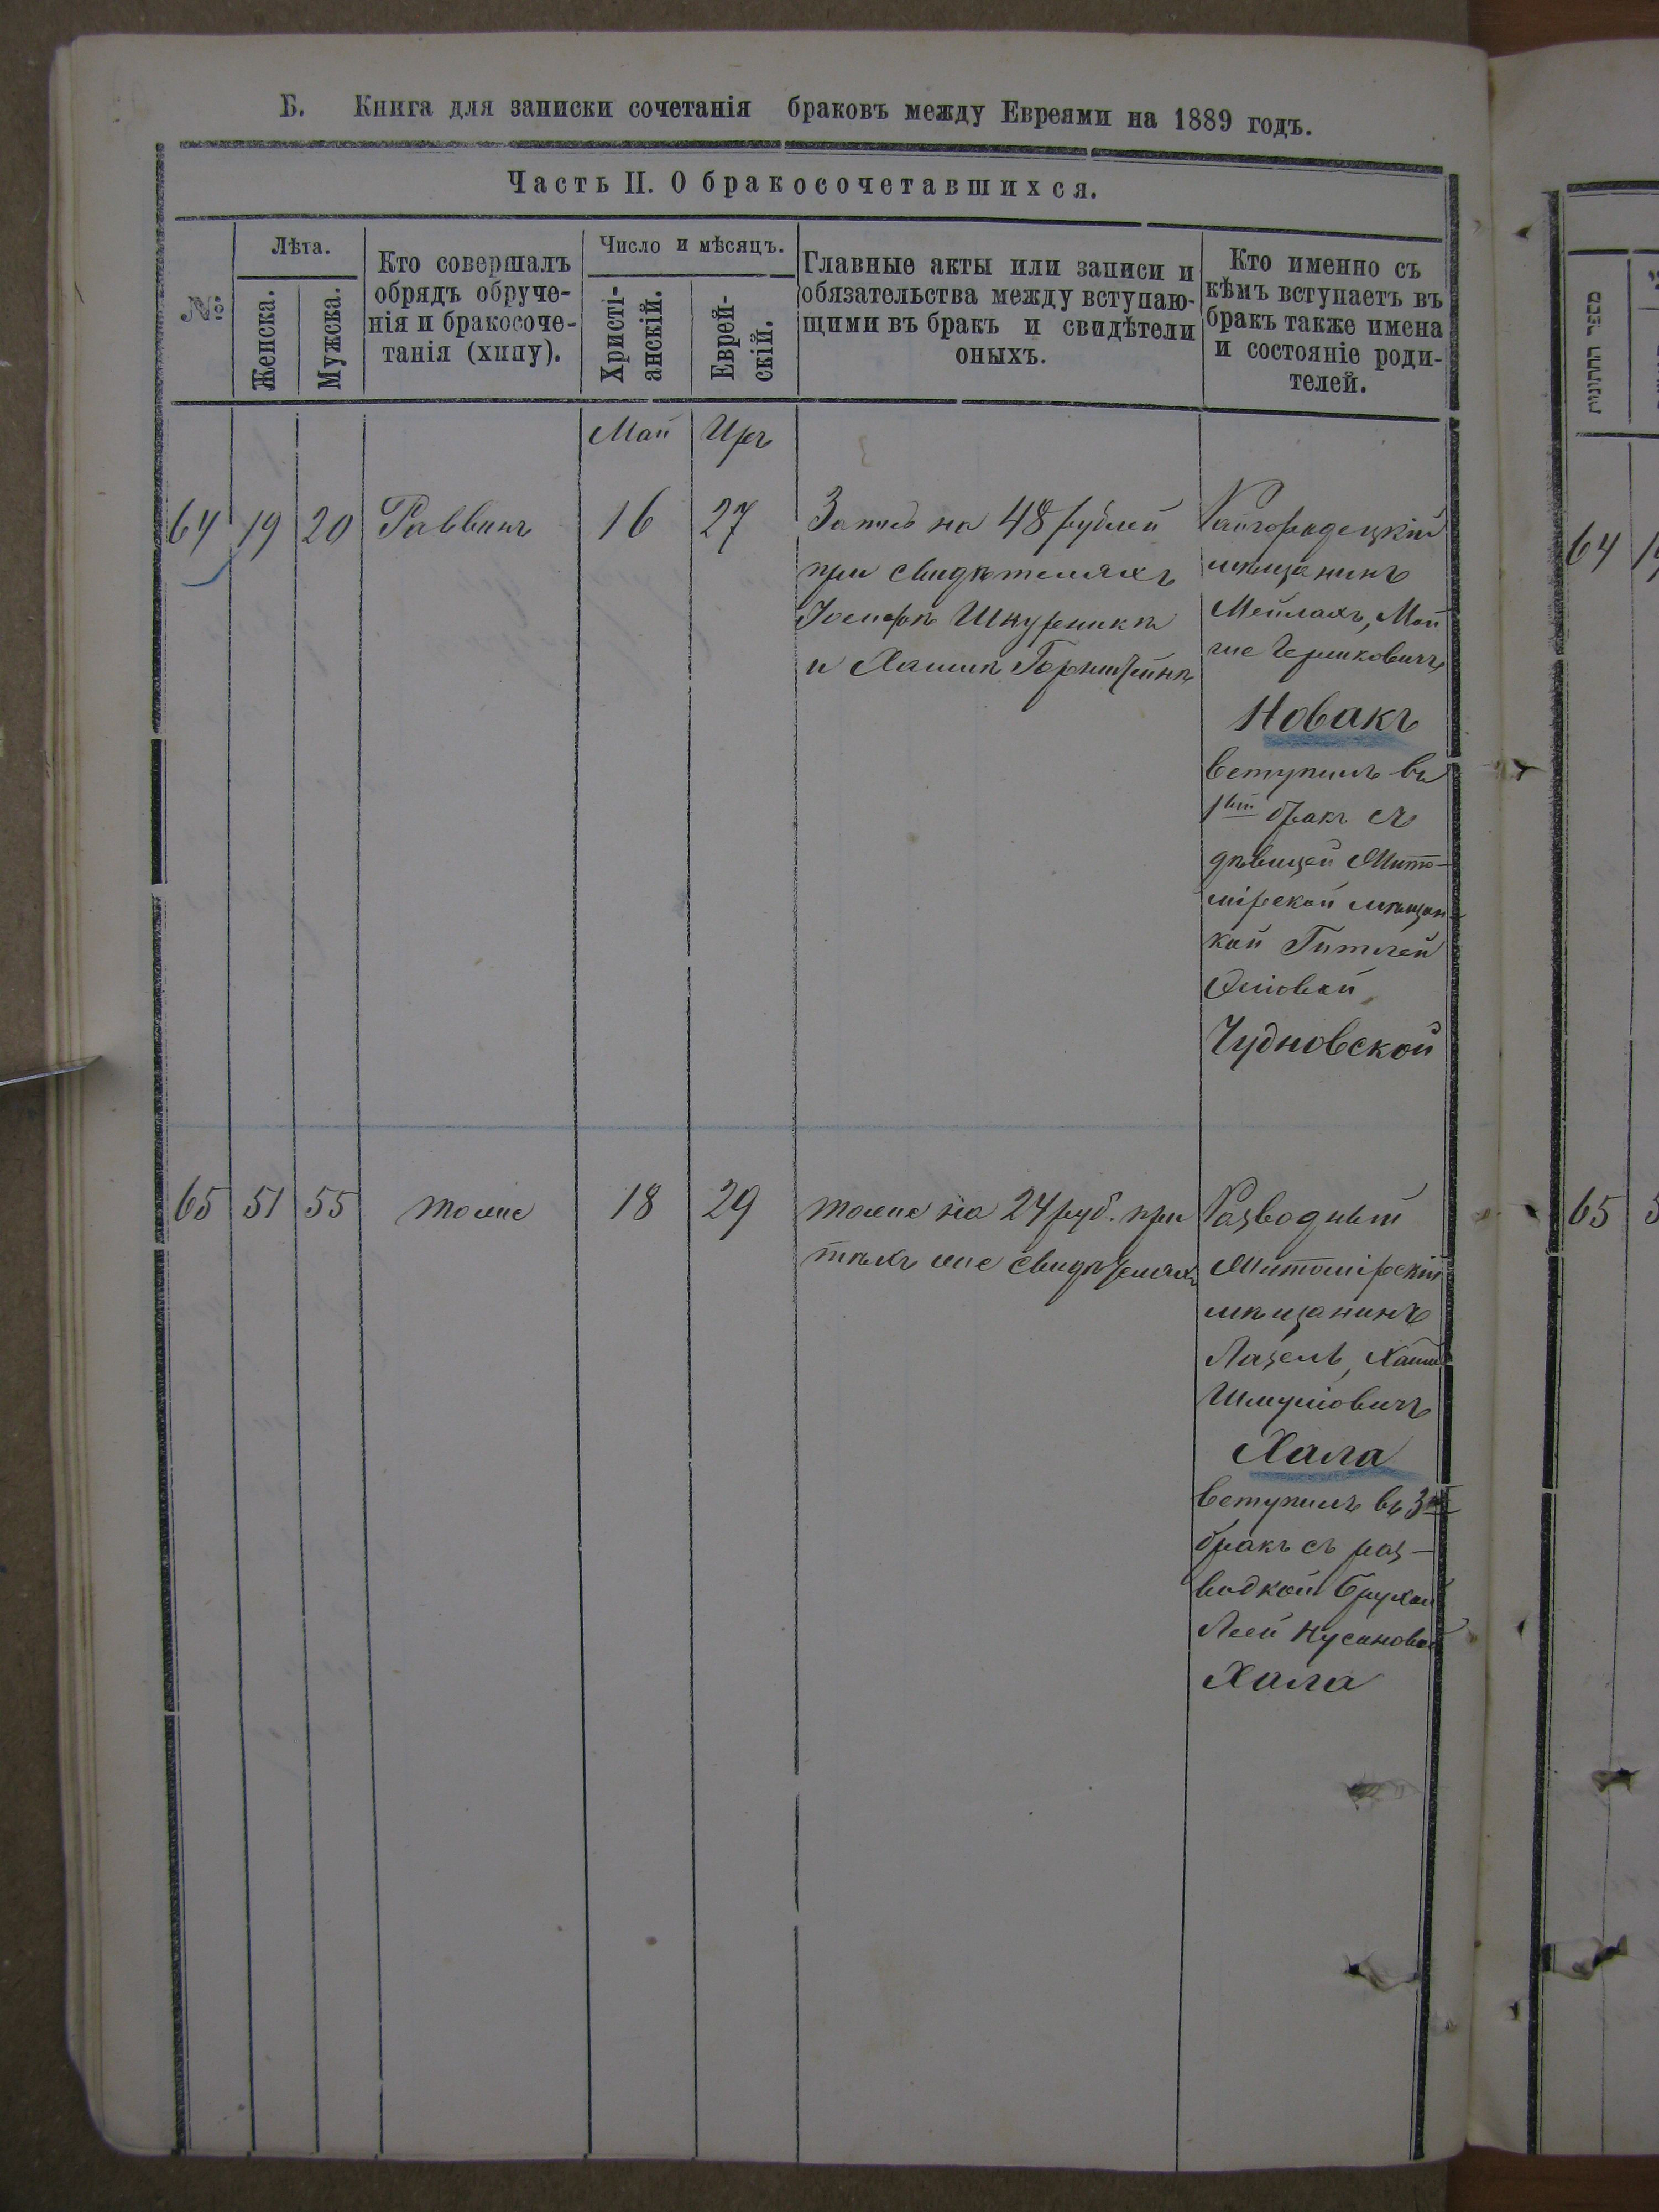 Б. Книга для записки сочетанія браковъ между Евреями на 1889 годъ.
Часть II. О бракосочетавшихся.
№
Лѣта.
Женска.
Мужска.
Кто совершалъ
обрядъ обруче-
нія и бракосоче-
танія (хипу).
Число и мѣсяцъ.
Христі-
анскій.
Еврей-
скій.
Главные акты или записи и
обязательства между вступаю-
щими въ бракъ и свидѣтели
оныхъ.
Кто именно съ
кѣмъ вступаетъ въ
бракъ также имена
и состояніе роди-
телей.
Май Иръ
64 19 20 Раввинъ 16 27
Запись на 48 рублей
при свидѣтеляхъ
Іосифѣ Шкурникѣ
и Хаимѣ Горнштейнѣ
Райгородецкій
мѣщанинъ
Мейлахъ, Мой
ше Гершковичъ
Новакъ
вступилъ въ
1вый бракъ съ
дѣвицей Жито-
мірской мѣщан-
кой Гитлей
Чудновской
65 51 55 тоже 18 29
тоже на 24 руб. при
тѣхъ же свидѣтеляхъ
Разводный
Житомірскій
мѣщанинъ
Лазель, Хаимъ
Шмуліовичъ
Хала
вступилъ въ 3й
бракъ съ раз-
водкой Брухой
Леей Нусиновой
Хала
מספר החתונות
64
65